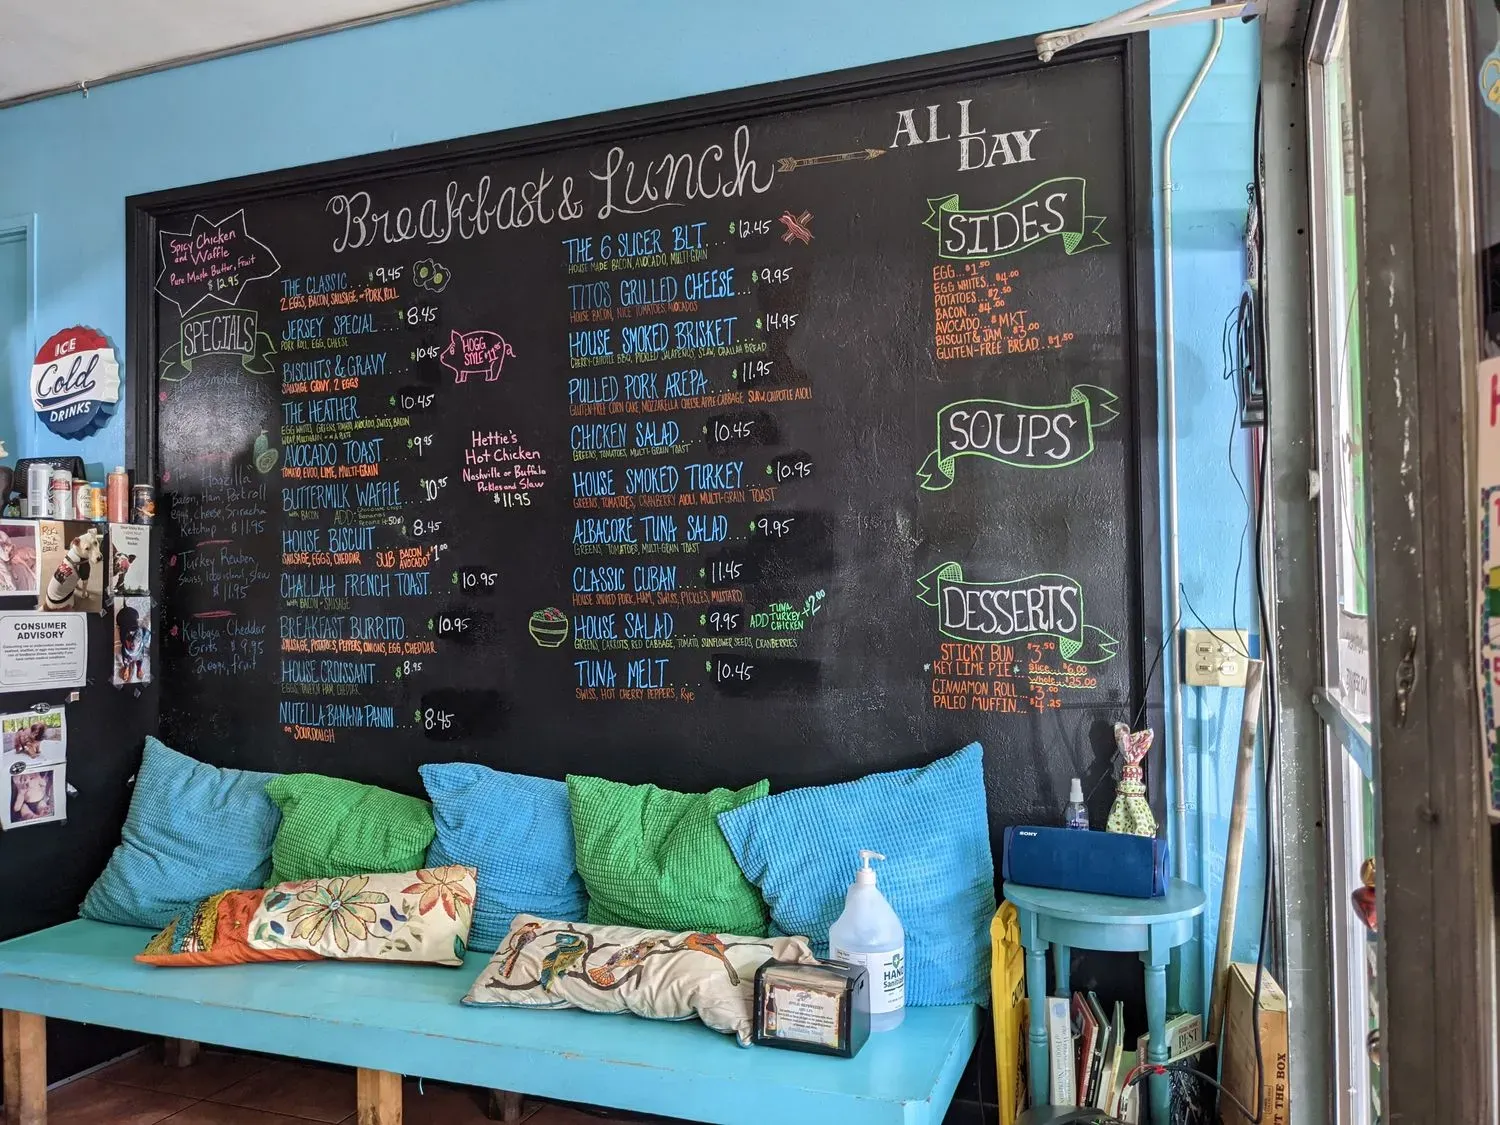 Breakfast & Lunch
ALL
DAY
Spicy Chicken
and Waffle
Pure Maple Butter, Fruit
$12.95
SPECIALS
House Smoked
Bacon, Ham, Pork roll
eggs, cheese, Sriracha
Ketchup - $11.95
Turkey Reuben
Swiss, Slaw
$11.95
Kielbasa - Cheddar
Grits. $9.95
2 eggs, fruit
THE CLASSIC... $9.45
2 EGGS, BACON, SAUSAGE, or PORK ROLL
JERSEY SPECIAL... $8.45
PORK ROLL, EGG, CHEESE
BISCUITS & GRAVY... $10.45
SAUSAGE GRAVY, 2 EGGS
HOGG
STYLE
THE HEATHER... $10.45
EGG WHITES, GREENS, TOMATO, AVOCADO, SWISS, BACON
AVOCADO TOAST... $9.95
TOMATO, EVOO, LIME, MULTI-GRAIN
BUTTERMILK WAFFLE... $10.95
with BACON ADD- Chocolate Chips
Bananas
HOUSE BISCUIT... $8.45
SAUSAGE, EGGS, CHEDDAR SUB BACON AVOCADO +$1.00
CHALLAH FRENCH TOAST... $10.95
with BACON - SAUSAGE
BREAKFAST BURRITO... $10.95
SAUSAGE, POTATOES, PEPPERS, ONIONS, EGG, CHEDDAR
HOUSE CROISSANT... $8.95
EGGS, HAM, CHEDDAR
NUTELLA BANANA PANINI... $8.45
on SOURDOUGH
Hettie's
Hot Chicken
Nashville or Buffalo
Pickles and Slaw
$11.95
THE 6 SLICER BLT... $12.45
HOUSE MADE BACON, AVOCADO, MULTI-GRAIN
TITO'S GRILLED CHEESE... $9.95
HOUSE BACON, NICE TOMATOES, AVOCADOS
HOUSE SMOKED BRISKET... $14.95
CHERRY-CHIPOTLE BBQ, PICKLED JALAPENOS, SLAW, CHALLAH BREAD
PULLED PORK AREPA... $11.95
GLUTEN-FREE CORN CAKE, MOZZARELLA CHEESE, APPLE CABBAGE SLAW, CHIPOTLE AIOLI
CHICKEN SALAD... $10.45
GREENS, TOMATOES, MULTI-GRAIN TOAST
HOUSE SMOKED TURKEY... $10.95
GREENS, TOMATOES, CRANBERRY AIOLI, MULTI-GRAIN TOAST
ALBACORE TUNA SALAD... $9.95
GREENS, TOMATOES, MULTI-GRAIN TOAST
CLASSIC CUBAN... $11.45
HOUSE SMOKED PORK, HAM, SWISS, PICKLES, MUSTARD
HOUSE SALAD... $9.95
GREENS, CARROTS, RED CABBAGE, TOMATO, SUNFLOWER SEEDS, CRANBERRIES
TUNA
ADD TURKEY +$2.00
CHICKEN
TUNA MELT... $10.45
SWISS, HOT CHERRY PEPPERS, Rye
SIDES
EGG... $1.50
EGG WHITES... $4.00
POTATOES... $2.50
BACON... $4.00
AVOCADO... MKT
BISCUIT & JAM... $3.00
GLUTEN-FREE BREAD... $1.50
SOUPS
DESSERTS
STICKY BUN... $3.50
KEY LIME PIE... Slice... $6.00
Whole... $25.00
CINNAMON ROLL... $3.00
PALEO MUFFIN... $4.25
ICE
Cold
DRINKS
CONSUMER
ADVISORY
SONY
HAND
Sanitizer
BEST
OUT THE BOX